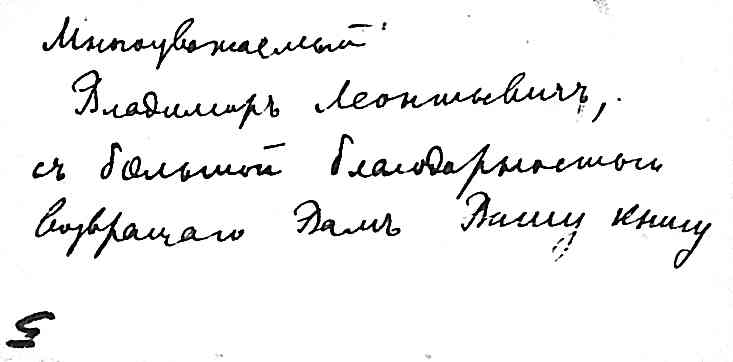 Многоуважаемый
Владимиръ Леонтьевичъ,
съ большой благодарностью
возвращаю Вамъ Вашу книгу